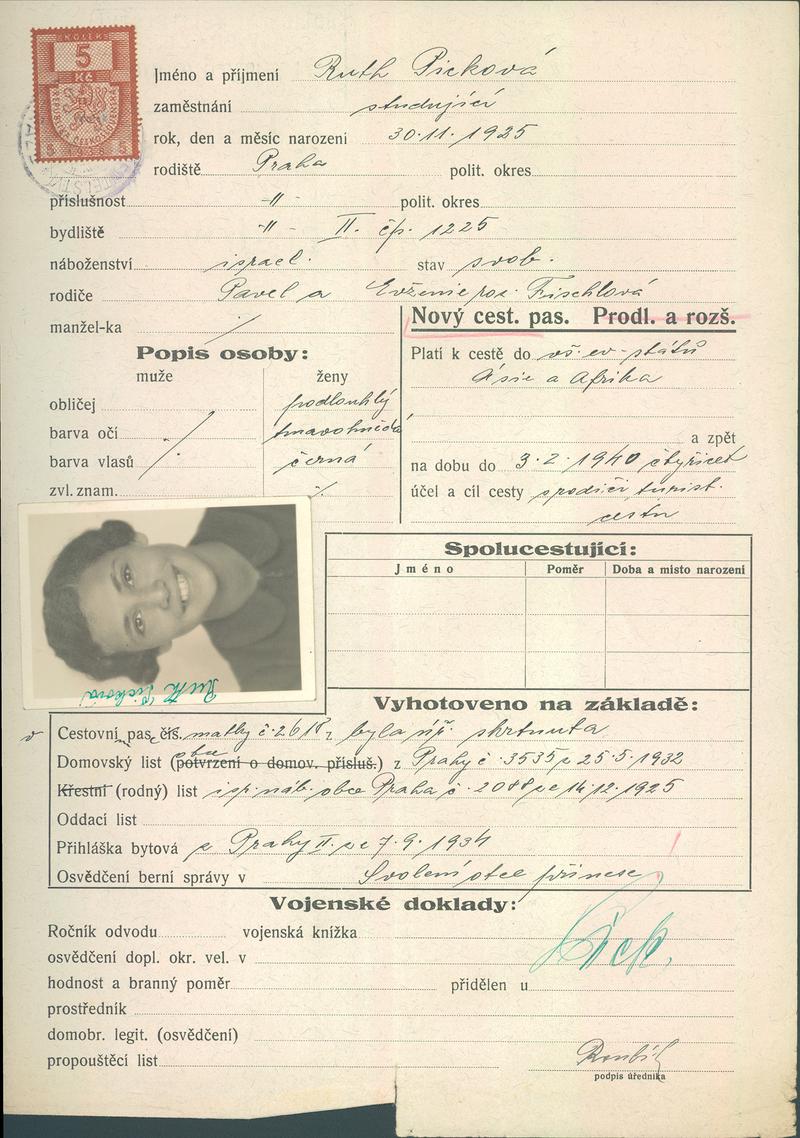 KOLEK
5
Kč
Jméno a příjmení Ruth Picková
zaměstnání studující
rok, den a měsíc narozeni 30.11.1925
rodiště Praha polit. okres
příslušnost -"- polit. okres
bydliště -"- II. čp. 1225
náboženství israel. stav svob.
rodiče Pavel a Evženie roz. Fischlová
manžel-ka /
Nový cest. pas. Prodl. a rozš.
Popis osoby:
muže ženy
obličej podlouhlý
barva očí tmavohnědá
barva vlasů černá
zvl. znam. ·/.
Platí k cestě do vš. ev. států
Asie a Afrika
a zpět
na dobu do 3.2.1940 čtyřicet
účel a cíl cesty s rodiči turist.
cestu
Ruth Picková
Spolucestující:
Jméno Poměr Doba a misto narození
Vyhotoveno na základě:
Cestovní pas čís. matky č. 2618 z byla
Domovský list (potvrzení o domov. přísluš.) z Prahy č. 3535 z 25.5.1932
Křestní (rodný) list isr. náb. obce Praha č. 2088 ze 14.12.1925
Oddací list
Přihláška bytová z Prahy II. ze 7.9.1934
Osvědčení berní správy v Svolení otce přinese !
Vojenské doklady:
Ročník odvodu vojenská knížka
osvědčení dopl. okr. vel. v
hodnost a branný poměr přidělen u
prostředník
domobr. legit. (osvědčení)
propouštěcí list
podpis úředníka